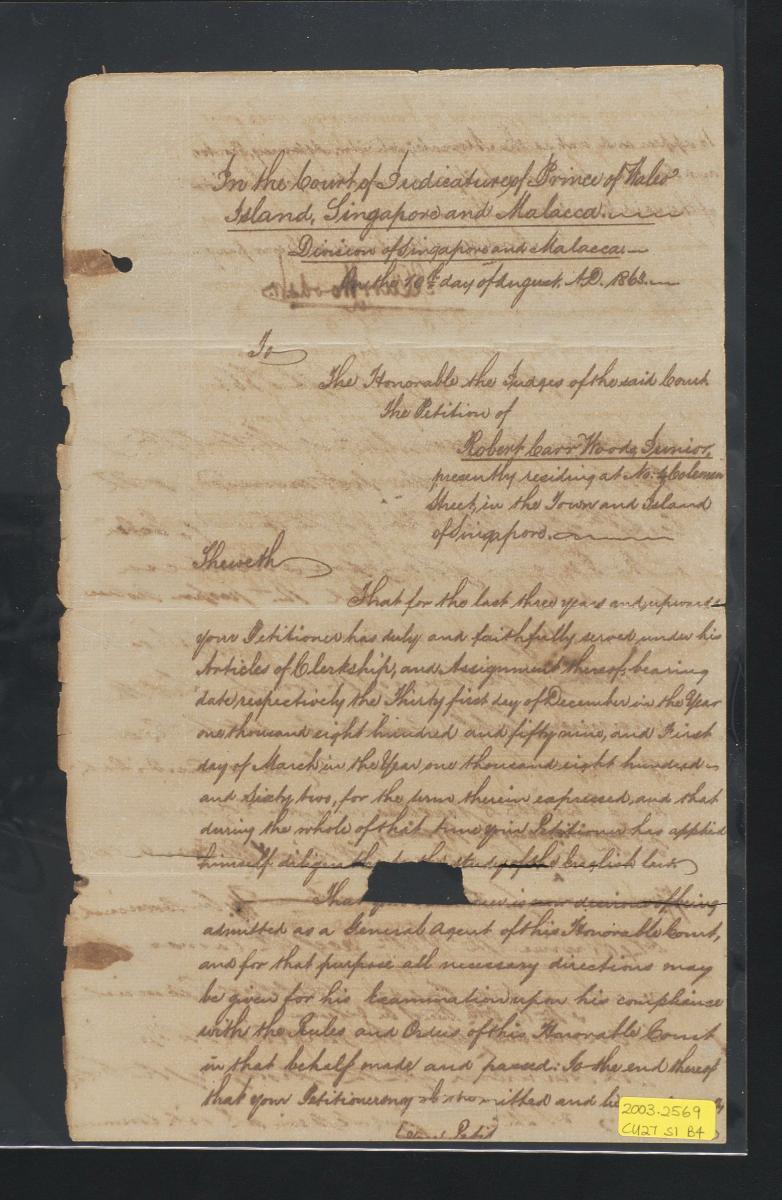 In the Court of Judicature of Prince of Wales
Island, Singapore and Malacca.
Division of Singapore and Malacca.
On the day of August, A.D. 1863.
To
The Honorable the Judges of the said Court
The Petition of
Robert Carr Woods, Junior,
presently residing at No. Coleman
Street, in the Town and Island
of Singapore.
Sheweth
That for the last three years and upwards
your Petitioner has duly and faithfully served under his
Articles of Clerkship, and Assignment thereof, bearing
date respectively the Thirty first day of December in the Year
one thousand eight hundred and fifty nine, and First
day of March in the Year one thousand eight hundred
and Sixty two, for the term therein expressed, and that
during the whole of that time your Petitioner has applied
himself to the study of the English law.
That is now desirous of being
admitted as a General Agent of this Honorable Court,
and for that purpose all necessary directions may
be given for his Examination upon his compliance
with the Rules and Orders of this Honorable Court
in that behalf made and passed: To the end thereof
that your Petitioner may be admitted and
2003.2569
CU27 S1 B4